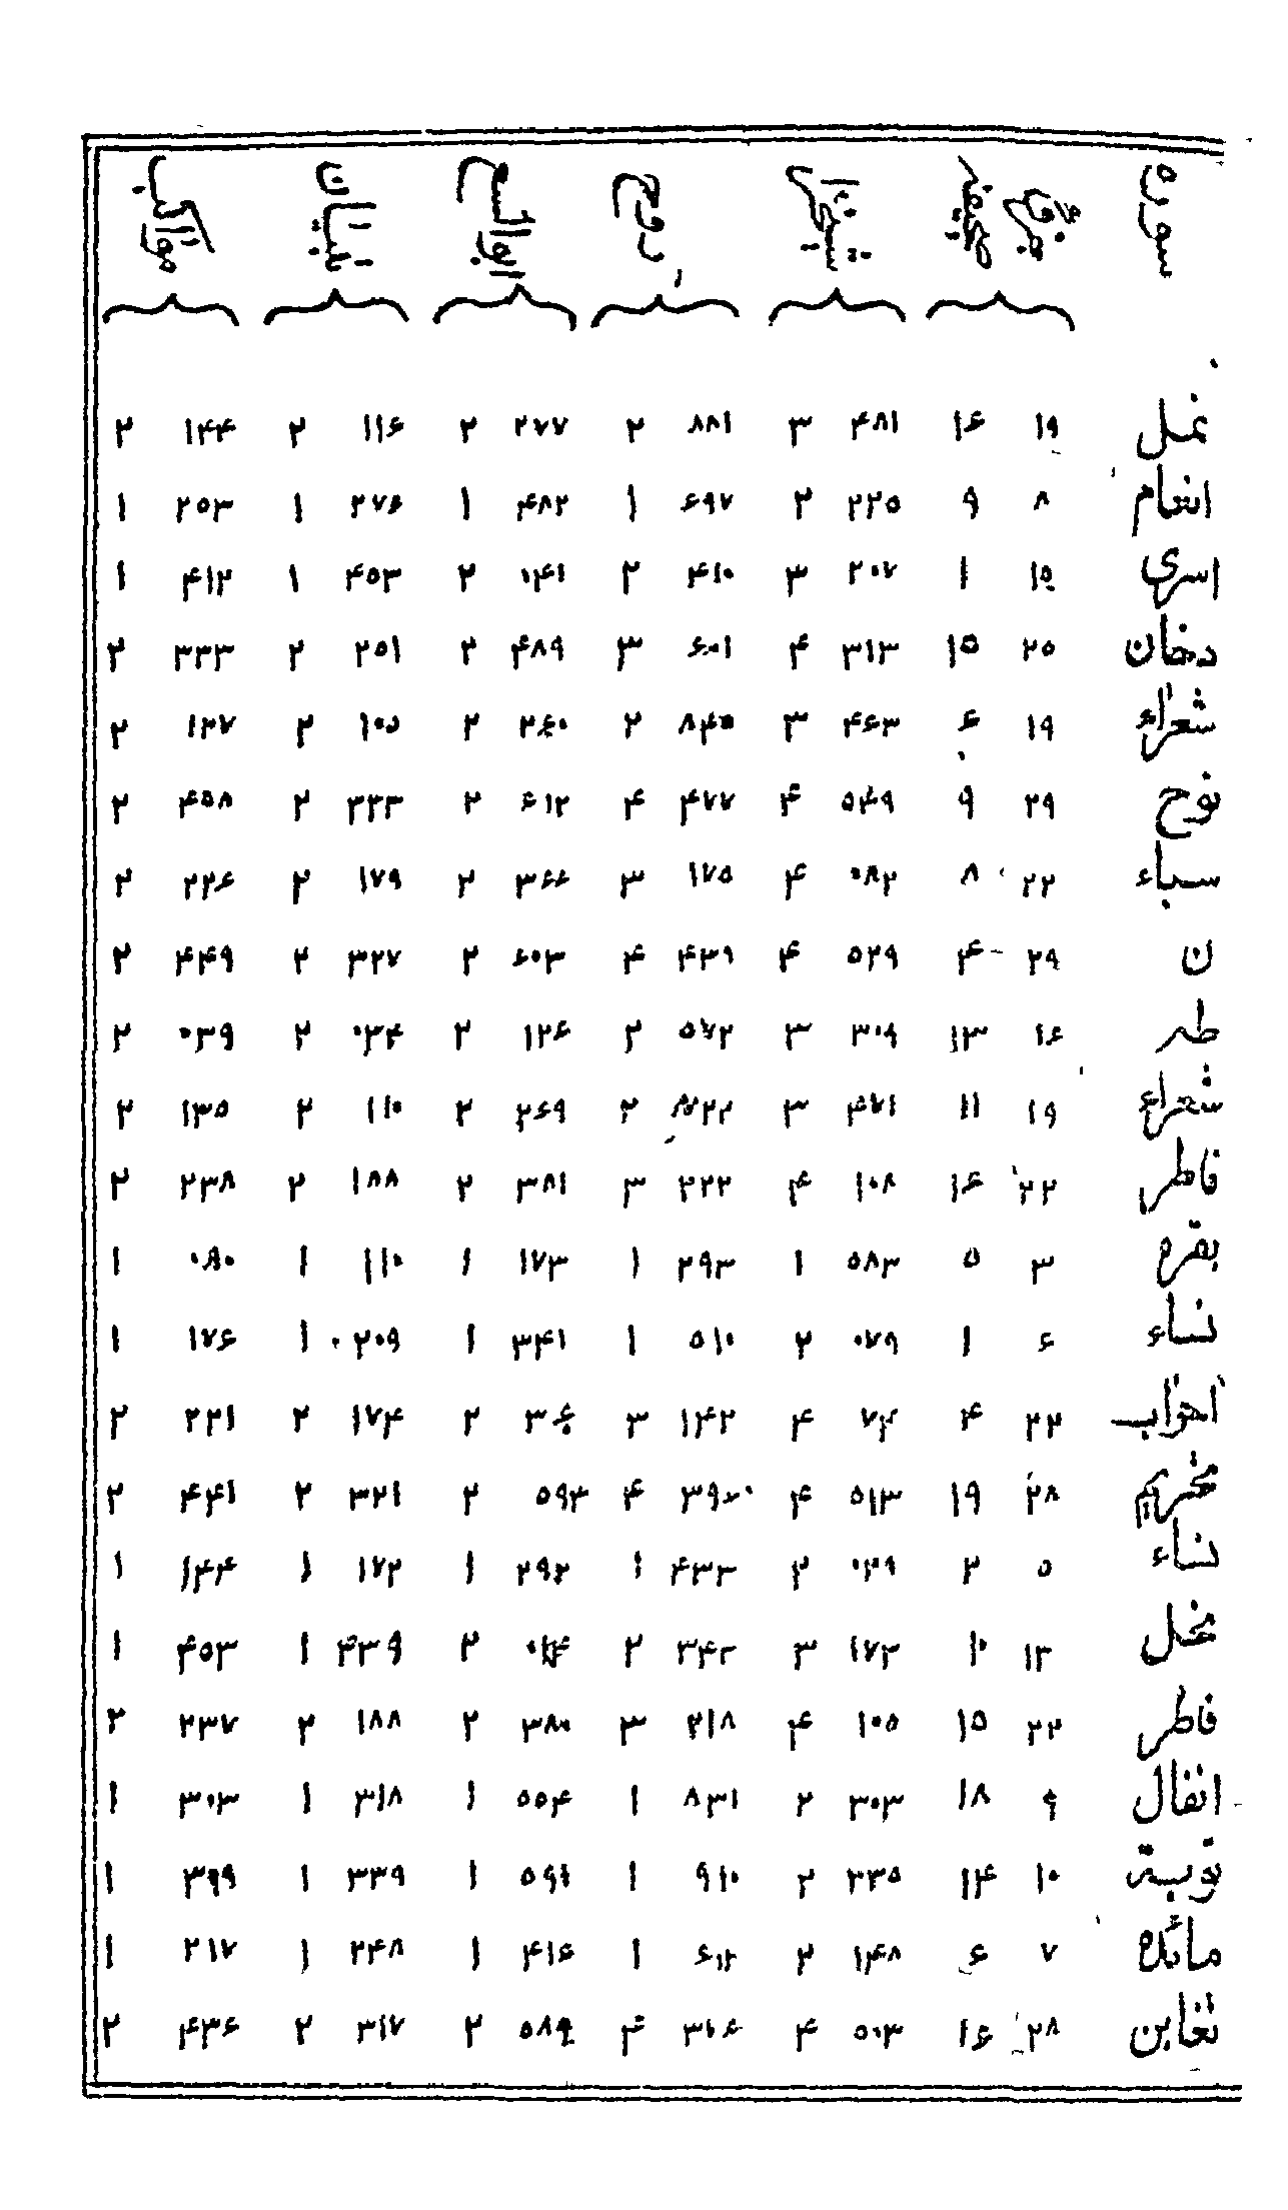 سوره مواهب
نمل ۱۹ ۱۶ ۴۸۱ ۳ ۸۸۱ ۲ ۲۷۷ ۲ ۱۱۶ ۲ ۱۴۴ ۲
انعام ۸ ۹ ۲۲۵ ۲ ۶۹۷ ۱ ۴۸۲ ۱ ۲۷۶ ۱ ۲۵۳ ۱
اسری ۱۵ ۱ ۲۰۷ ۳ ۴۱۰ ۲ ۰۴۱ ۲ ۴۵۳ ۱ ۴۱۲ ۱
دخان ۲۵ ۱۵ ۳۱۳ ۴ ۶۰۱ ۳ ۴۸۹ ۲ ۲۵۱ ۲ ۳۳۳ ۲
شعراء ۱۹ ۶ ۴۶۳ ۳ ۲ ۲۶۰ ۲ ۱۰۵ ۲ ۱۲۷ ۲
نوح ۲۹ ۹ ۵۴۹ ۴ ۴۷۷ ۴ ۶۱۲ ۲ ۳۳۳ ۲ ۴۵۸ ۲
سباء ۲۲ ۸ ۰۸۲ ۴ ۱۷۵ ۳ ۳۶۶ ۲ ۱۷۹ ۲ ۲۲۶ ۲
ن ۲۹ ۴ ۵۲۹ ۴ ۴۳۹ ۴ ۶۰۳ ۲ ۳۲۷ ۲ ۴۴۹ ۲
طه ۱۶ ۱۳ ۳۰۹ ۳ ۵۷۲ ۲ ۱۲۶ ۲ ۰۳۴ ۲ ۰۳۹ ۲
شعراء ۱۹ ۱۱ ۴۷۱ ۳ ۲ ۲۶۹ ۲ ۱۱۰ ۲ ۱۳۵ ۲
فاطر ۲۲ ۱۶ ۱۰۸ ۴ ۲۲۲ ۳ ۳۸۱ ۲ ۱۸۸ ۲ ۲۳۸ ۲
بقره ۳ ۵ ۵۸۳ ۱ ۲۹۳ ۱ ۱۷۳ ۱ ۱۱۰ ۱ ۰۸۰ ۱
نساء ۶ ۱ ۰۷۹ ۲ ۵۱۰ ۱ ۳۴۱ ۱ ۲۰۹ ۱ ۱۷۶ ۱
احزاب ۲۲ ۴ ۷۴ ۴ ۱۴۲ ۳ ۲ ۱۷۴ ۲ ۲۲۱ ۲
تحریم ۲۸ ۱۹ ۵۱۳ ۴ ۴ ۵۹۳ ۲ ۳۲۱ ۲ ۴۴۱ ۲
نساء ۵ ۲ ۰۲۹ ۲ ۴۳۳ ۱ ۲۹۲ ۱ ۱۷۲ ۱ ۱۴۴ ۱
نحل ۱۳ ۱۰ ۱۷۳ ۳ ۳۴۳ ۲ ۲ ۴۳۹ ۱ ۴۵۳ ۱
فاطر ۲۲ ۱۵ ۱۰۵ ۴ ۲۱۸ ۳ ۳۸۰ ۲ ۱۸۸ ۲ ۲۳۷ ۲
انفال ۹ ۱۸ ۳۰۳ ۲ ۸۳۱ ۱ ۵۵۴ ۱ ۳۱۸ ۱ ۳۰۳ ۱
توبة ۱۰ ۱۴ ۳۳۵ ۲ ۹۱۰ ۱ ۵۹۱ ۱ ۳۳۹ ۱ ۱
مائده ۷ ۶ ۱۴۸ ۲ ۶۱۲ ۱ ۴۱۶ ۱ ۲۴۸ ۱ ۲۱۷ ۱
تغابن ۲۸ ۱۶ ۵۰۳ ۴ ۴ ۵۸۹ ۲ ۳۱۷ ۲ ۴۳۶ ۲